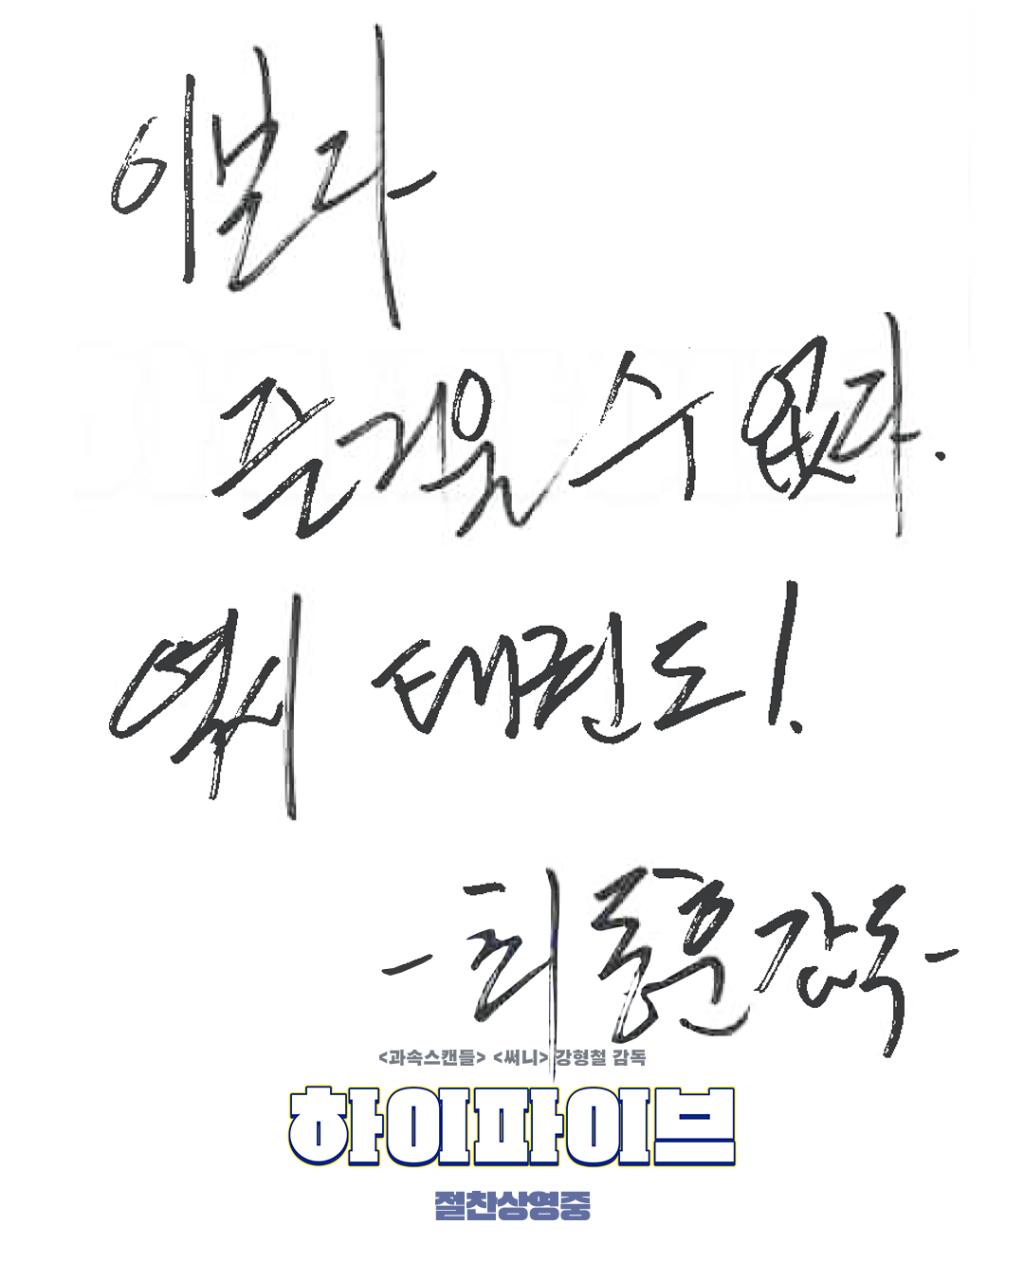 이보다
즐거울 수 없다.
역시 태권도!
- 최동훈 감독 -
<과속스캔들> <써니> 강형철 감독
하이파이브
절찬상영중